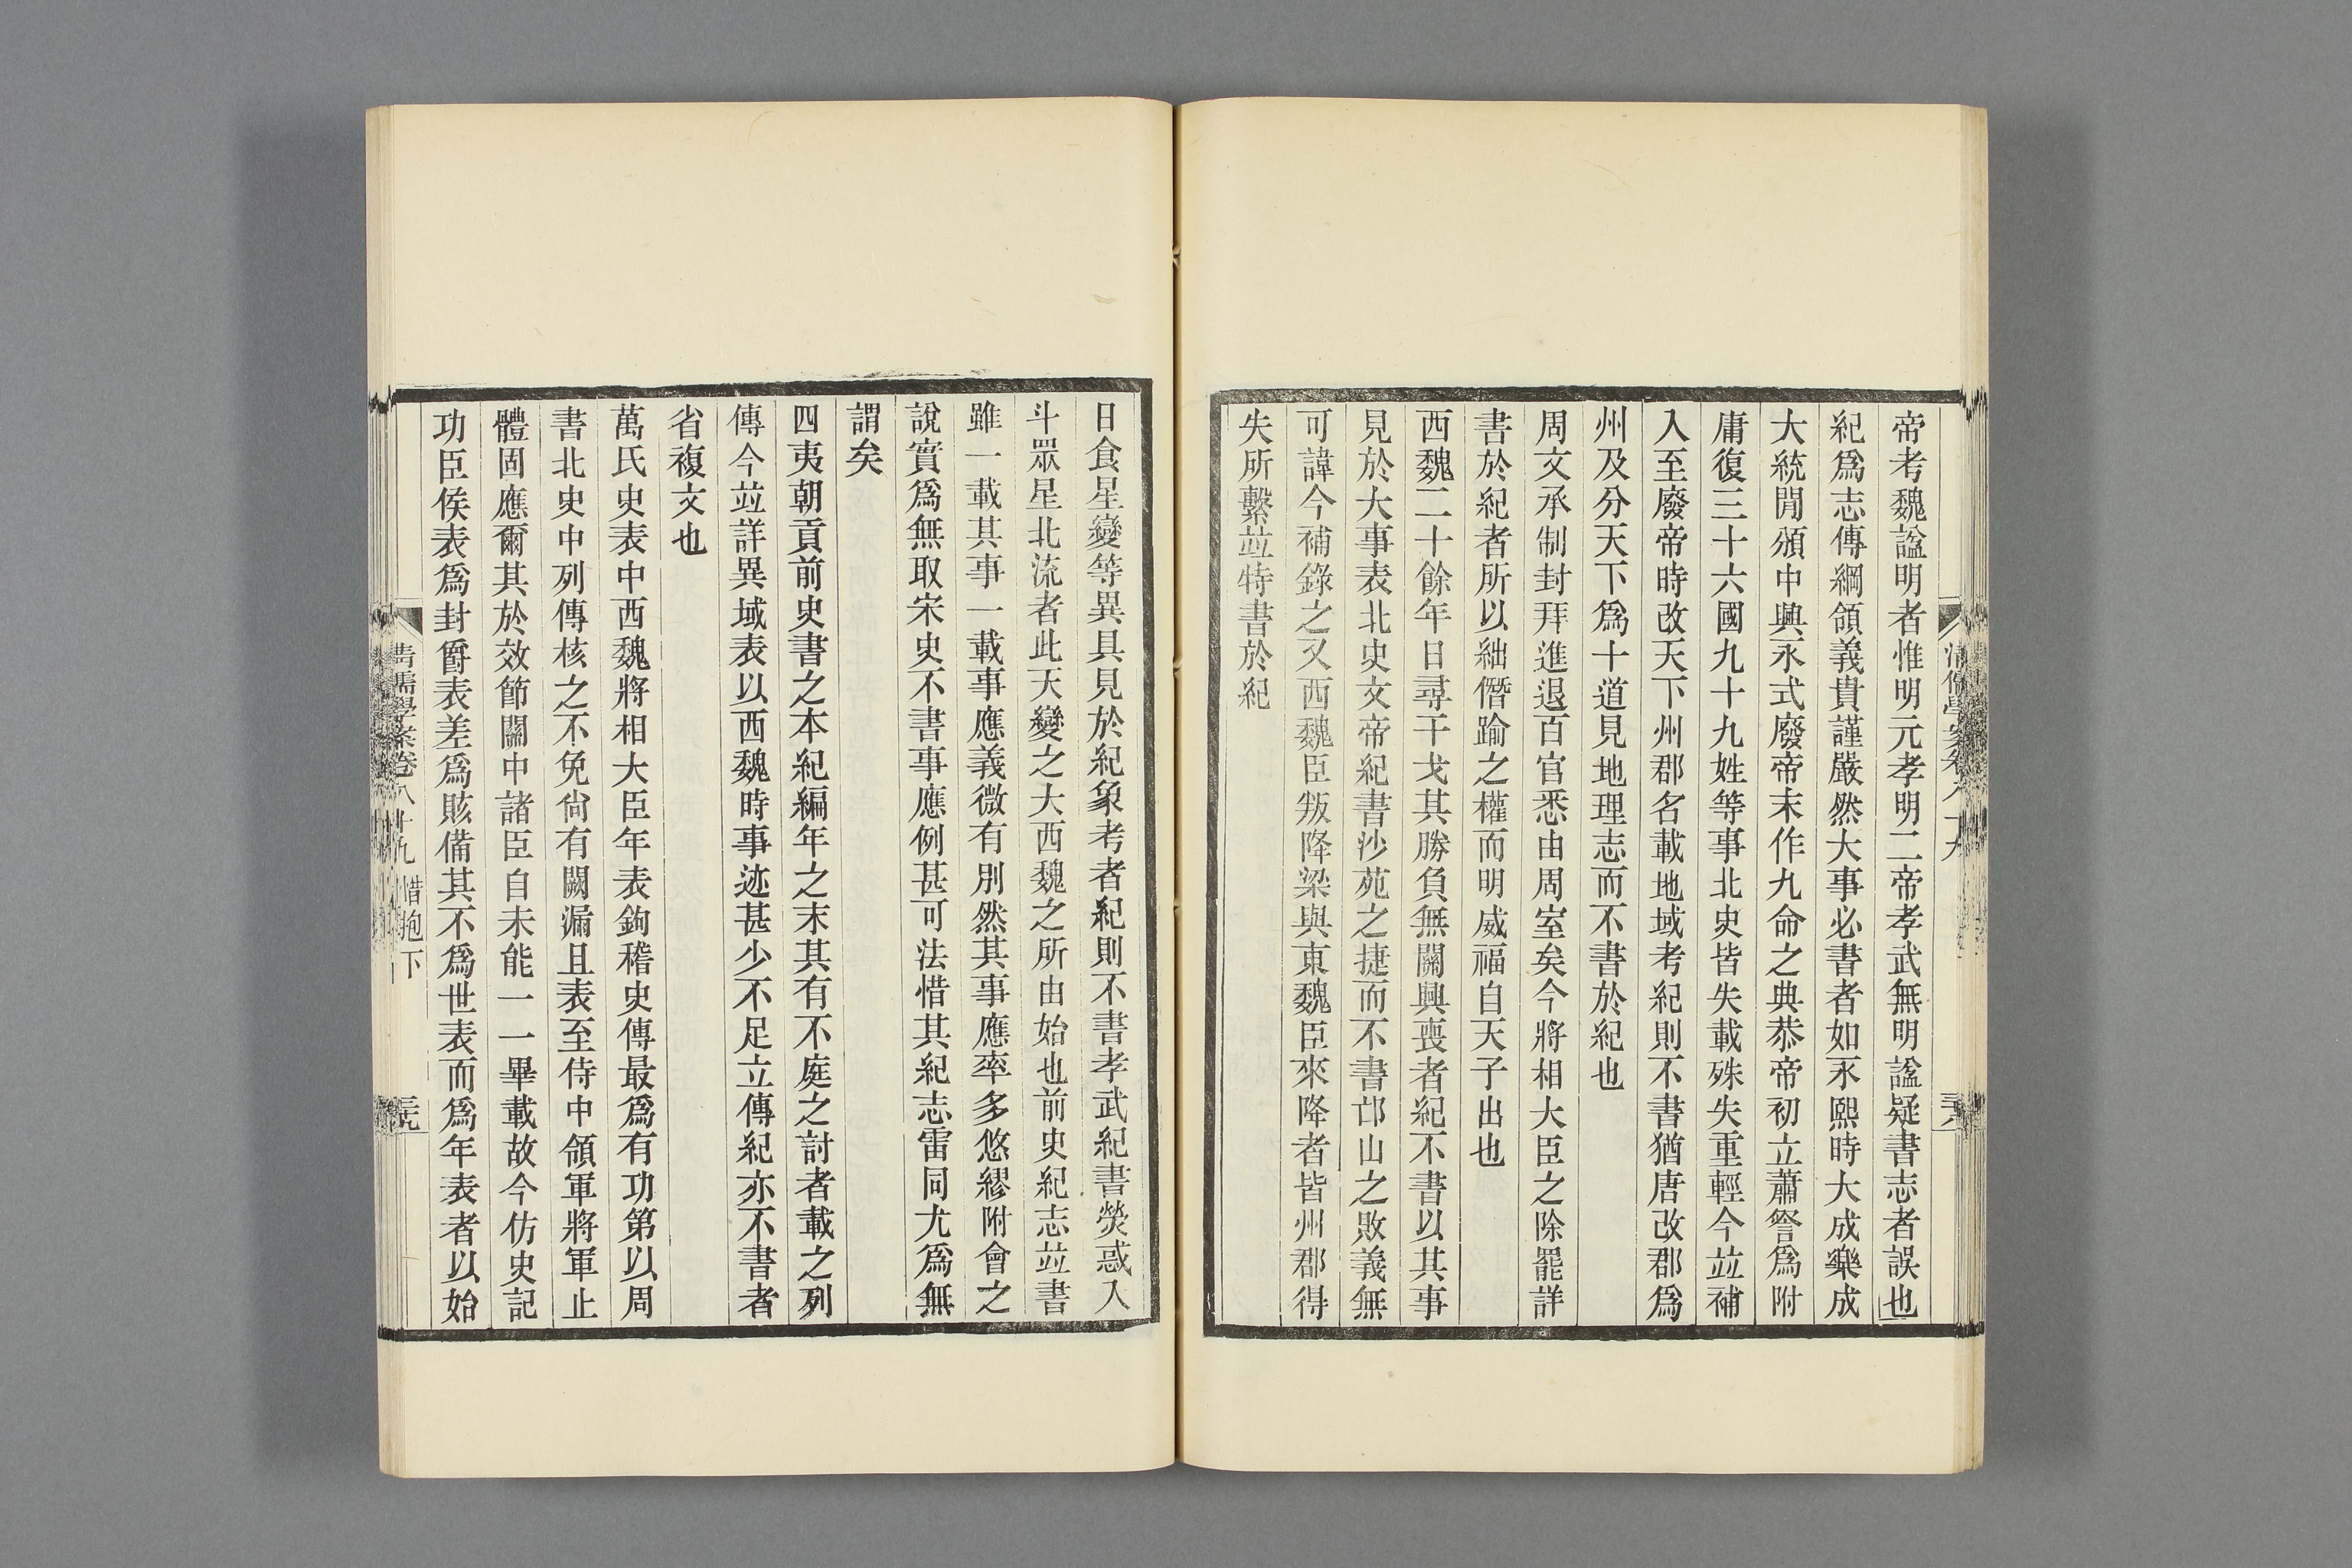 帝考魏諡明者惟明元孝明二帝孝武無明諡疑書志者誤也
紀爲志傳綱領義貴謹嚴然大事必書者如永熙時大成樂成
大統閒頒中興永式廢帝末作九命之典恭帝初立蕭詧爲附
庸復三十六國九十九姓等事北史皆失載殊失重輕今竝補
入至廢帝時改天下州郡名載地域考紀則不書猶唐改郡爲
州及分天下爲十道見地理志而不書於紀也
周文承制封拜進退百官悉由周室矣今將相大臣之除罷詳
書於紀者所以絀僭踰之權而明威福自天子出也
西魏二十餘年日尋干戈其勝負無關興喪者紀不書以其事
見於大事表北史文帝紀書沙苑之捷而不書邙山之敗義無
可諱今補錄之又西魏臣叛降梁與東魏臣來降者皆州郡得
失所繫竝特書於紀
日食星變等異具見於紀象考者紀則不書孝武紀書熒惑入
斗眾星北流者此天變之大西魏之所由始也前史紀志竝書
雖一載其事一載事應義微有別然其事應率多悠繆附會之
說實爲無取宋史不書事應例甚可法惜其紀志雷同尤爲無
謂矣
四夷朝貢前史書之本紀編年之末其有不庭之討者載之列
傳今竝詳異域表以西魏時事迹甚少不足立傳紀亦不書者
省複文也
萬氏史表中西魏將相大臣年表鉤稽史傳最爲有功第以周
書北史中列傳核之不免尙有闕漏且表至侍中領軍將軍止
體固應爾其於效節關中諸臣自未能一一畢載故今仿史記
功臣侯表爲封爵表差爲賅備其不爲世表而爲年表者以始
清儒學案卷八十九 惜抱下